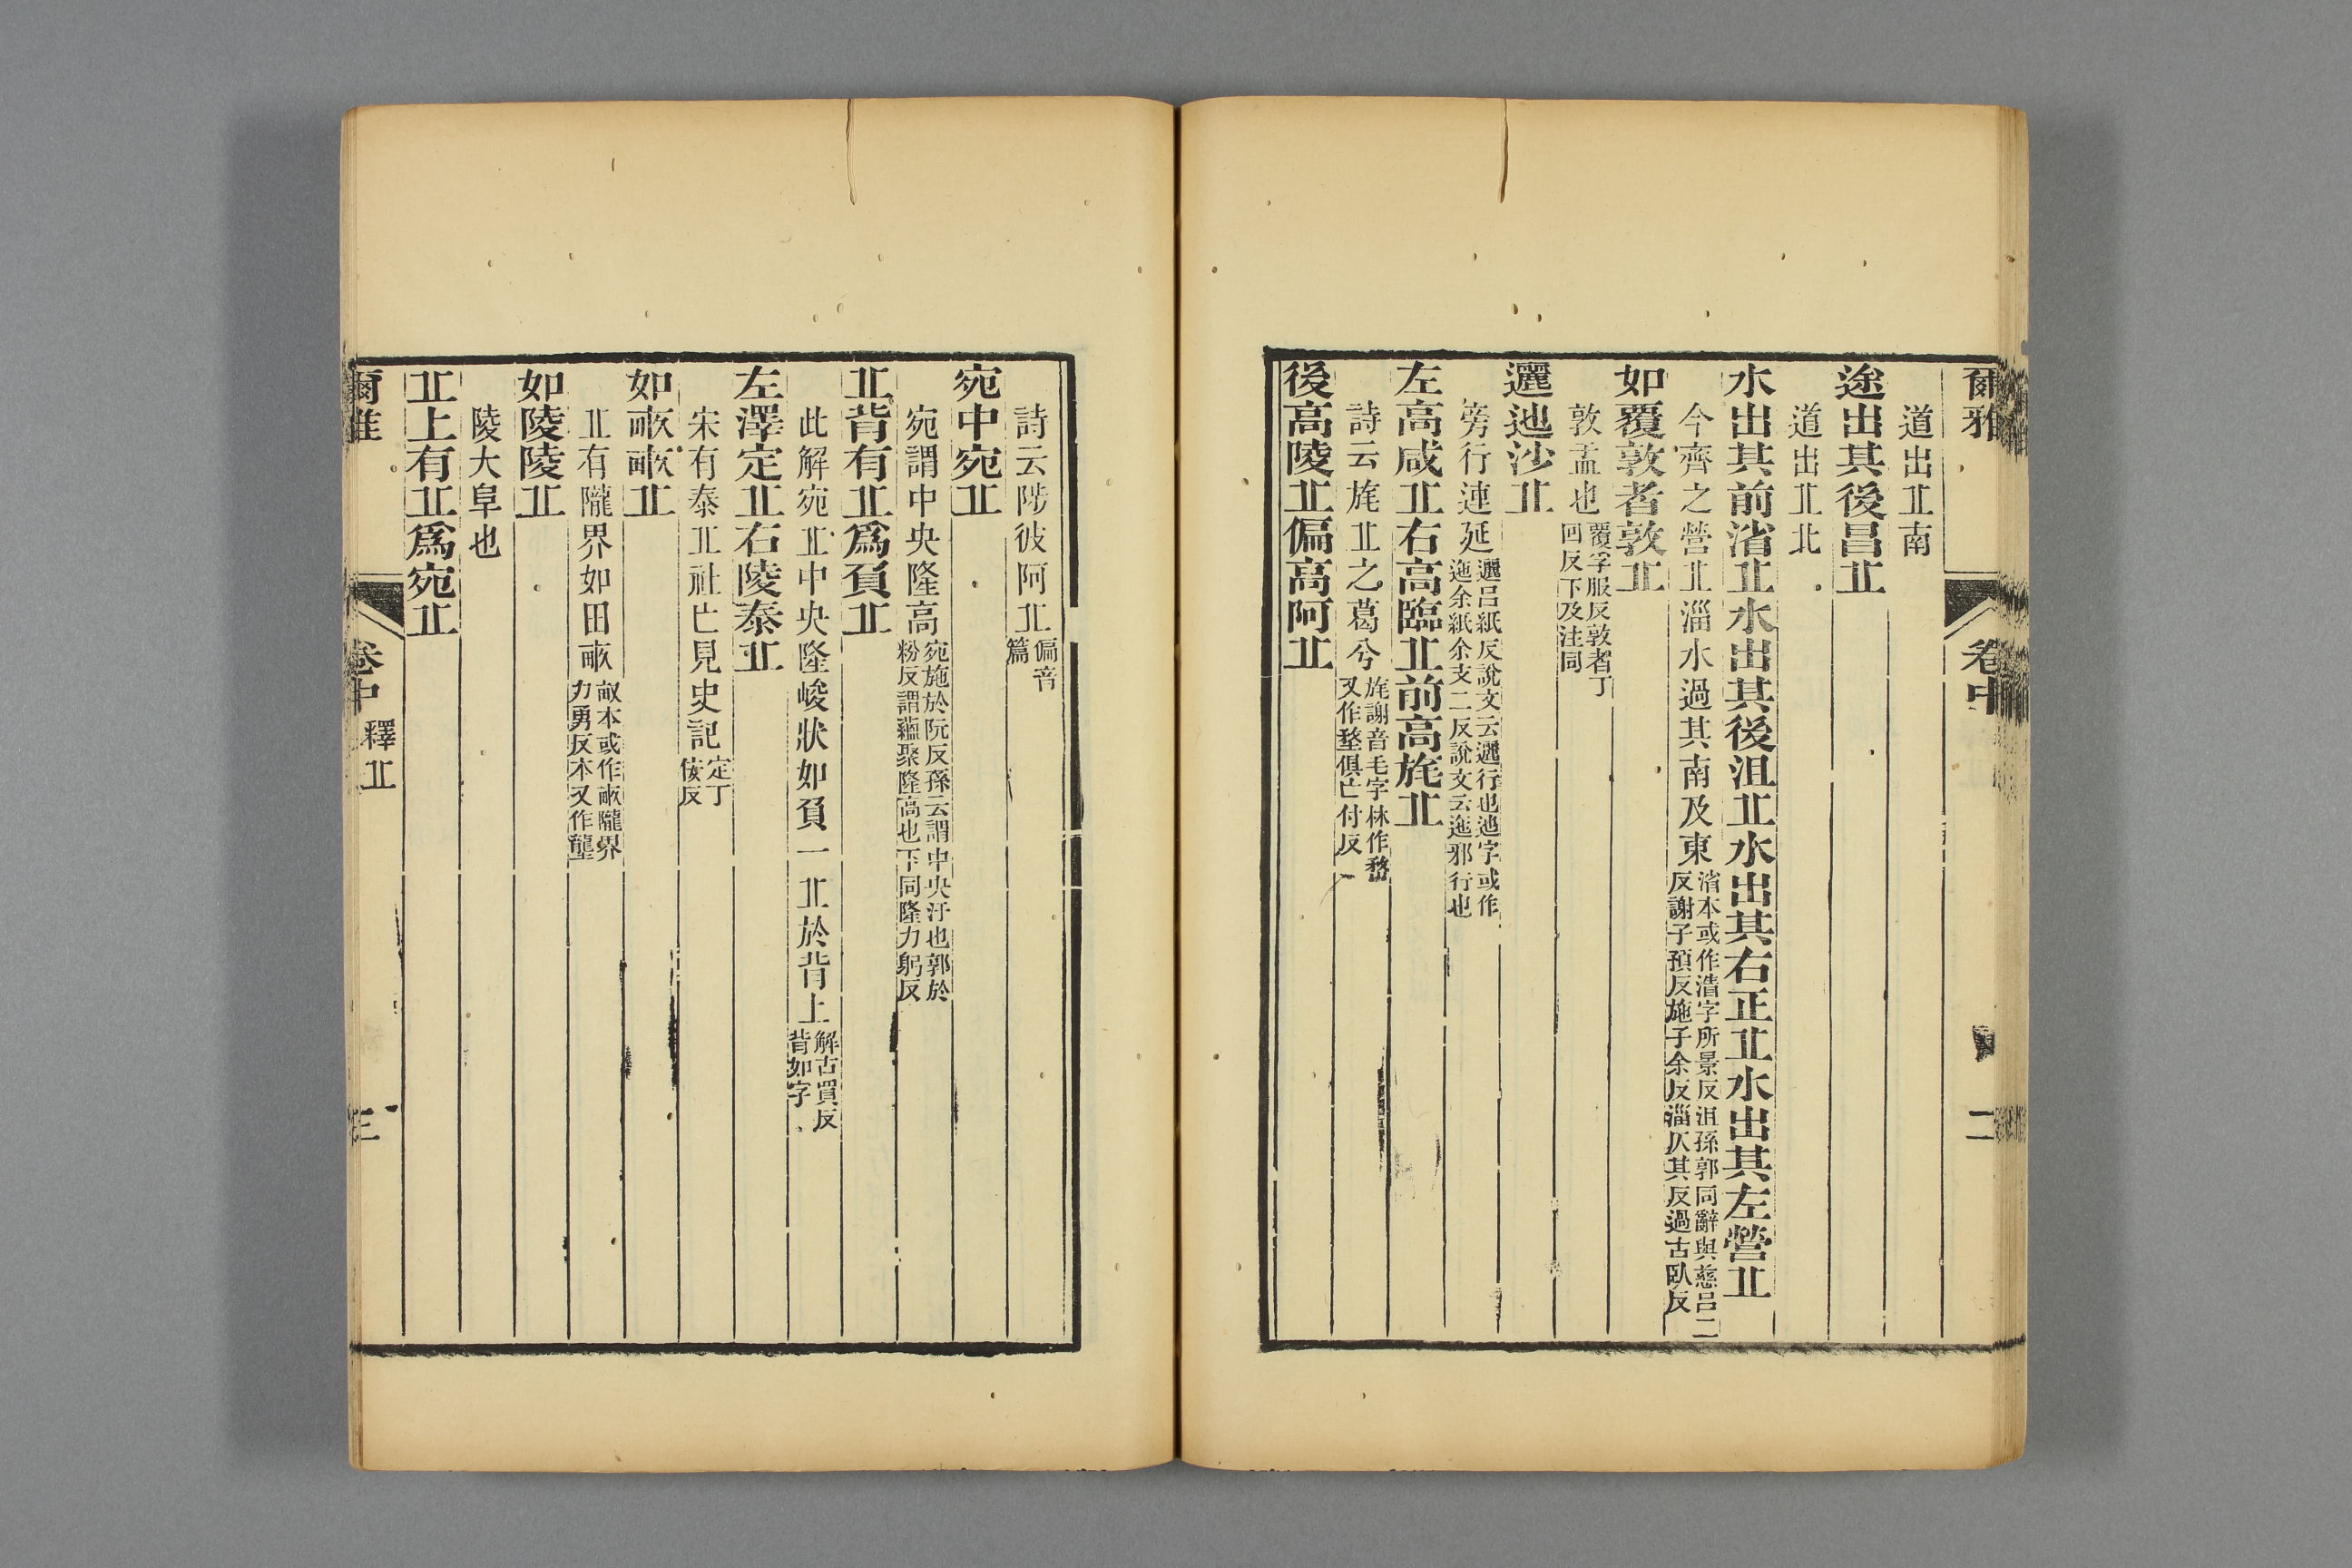 爾雅
卷中
二
道出丘南
途出其後昌丘
道出丘北
水出其前渻丘水出其後沮丘水出其右正丘水出其左營丘
今齊之營丘淄水過其南及東
渻本或作渻字所景反沮孫郭同辭與慈呂二
反謝子預反施子余反淄仄其反過古臥反
如覆敦者敦丘
敦盂也
覆孚服反敦者丁
回反下及注同
邐迆沙丘
旁行連延
邐呂紙反說文云邐行也迆字或作
迤余紙余支二反說文云迆邪行也
左高咸丘右高臨丘前高旄丘
詩云旄丘之葛兮
旄謝音毛字林作堥
又作嵍俱亡付反
後高陵丘偏高阿丘
詩云陟彼阿丘
偏音
篇
宛中宛丘
宛謂中央隆高
宛施於阮反孫云謂中央汙也郭於
粉反謂蘊聚隆高也下同隆力躬反
丘背有丘爲負丘
此解宛丘中央隆峻狀如負一丘於背上
解古買反
背如字
左澤定丘右陵泰丘
宋有泰丘社亡見史記
定丁
佞反
如畝畝丘
丘有隴界如田畝
畝本或作畝隴界
力勇反本又作壟
如陵陵丘
陵大阜也
丘上有丘爲宛丘
爾雅
卷中
釋丘
三